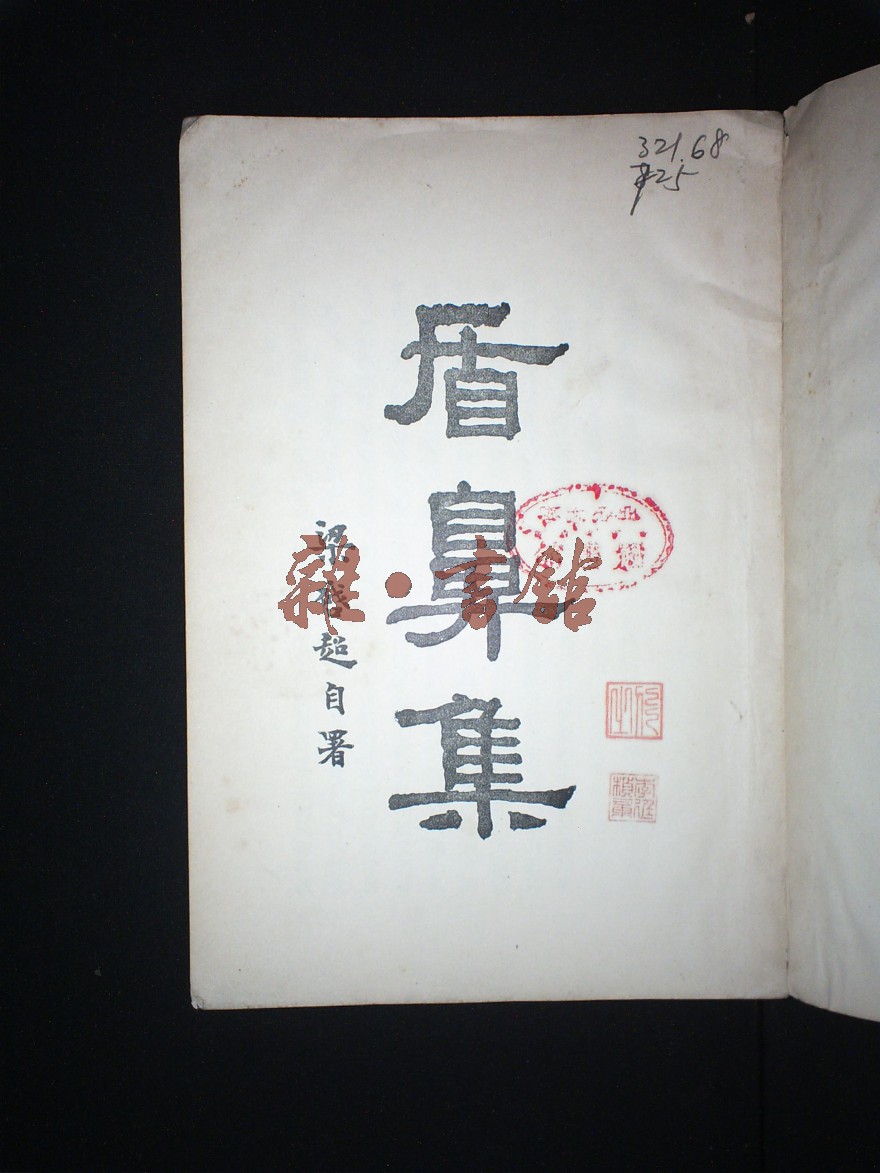 321.68
725
盾鼻集
梁啓超自署
雜·書館